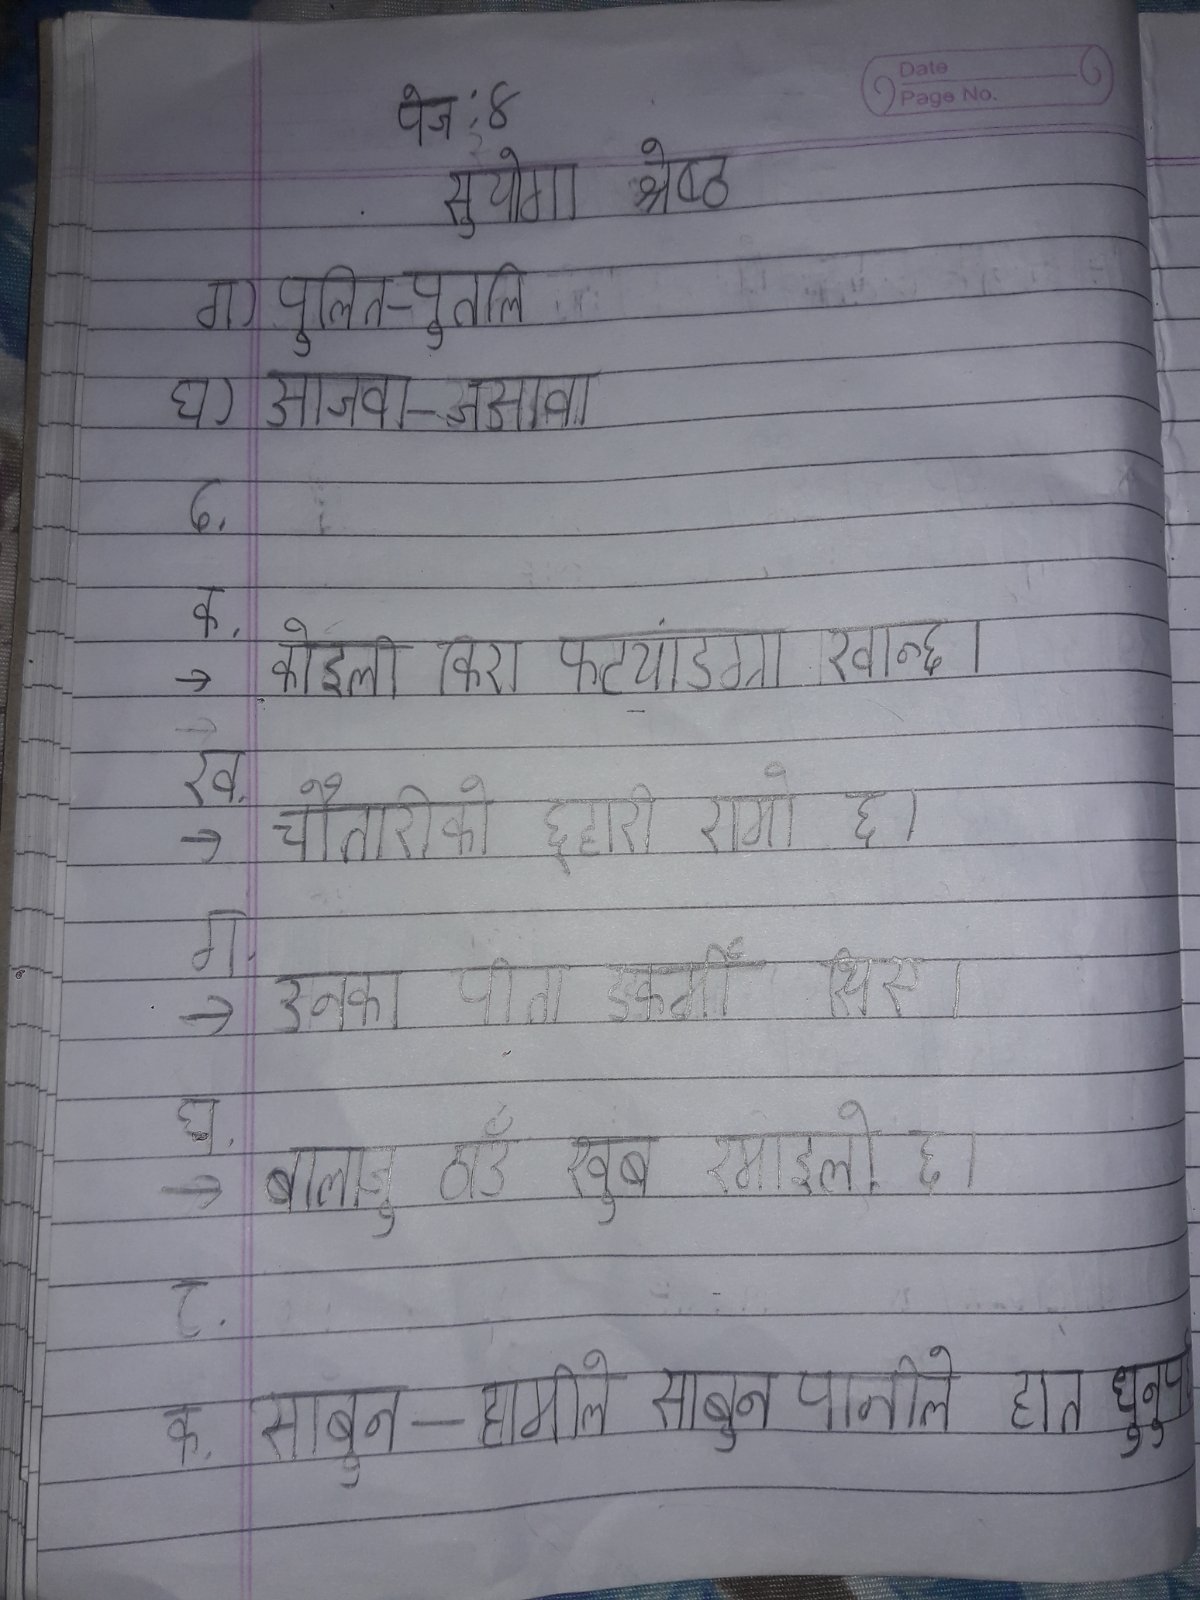 Date
Page No.
पेज : ४
सुयोगा श्रेष्ठ
ग) पुलित-पुतलि
घ) आजवा-जआवा
८.
क.
→ कोइली किरा फट्याङग्रा खान्छ।
ख.
→ चौतारीको छहारी रामो छ।
ग.
→ उनका पीता डकर्मी थिए।
घ.
→ बालाजु ठाउँ खुब रमाइलो छ।
९.
क. साबुन - हामीले साबुन पानीले हात धुनुप